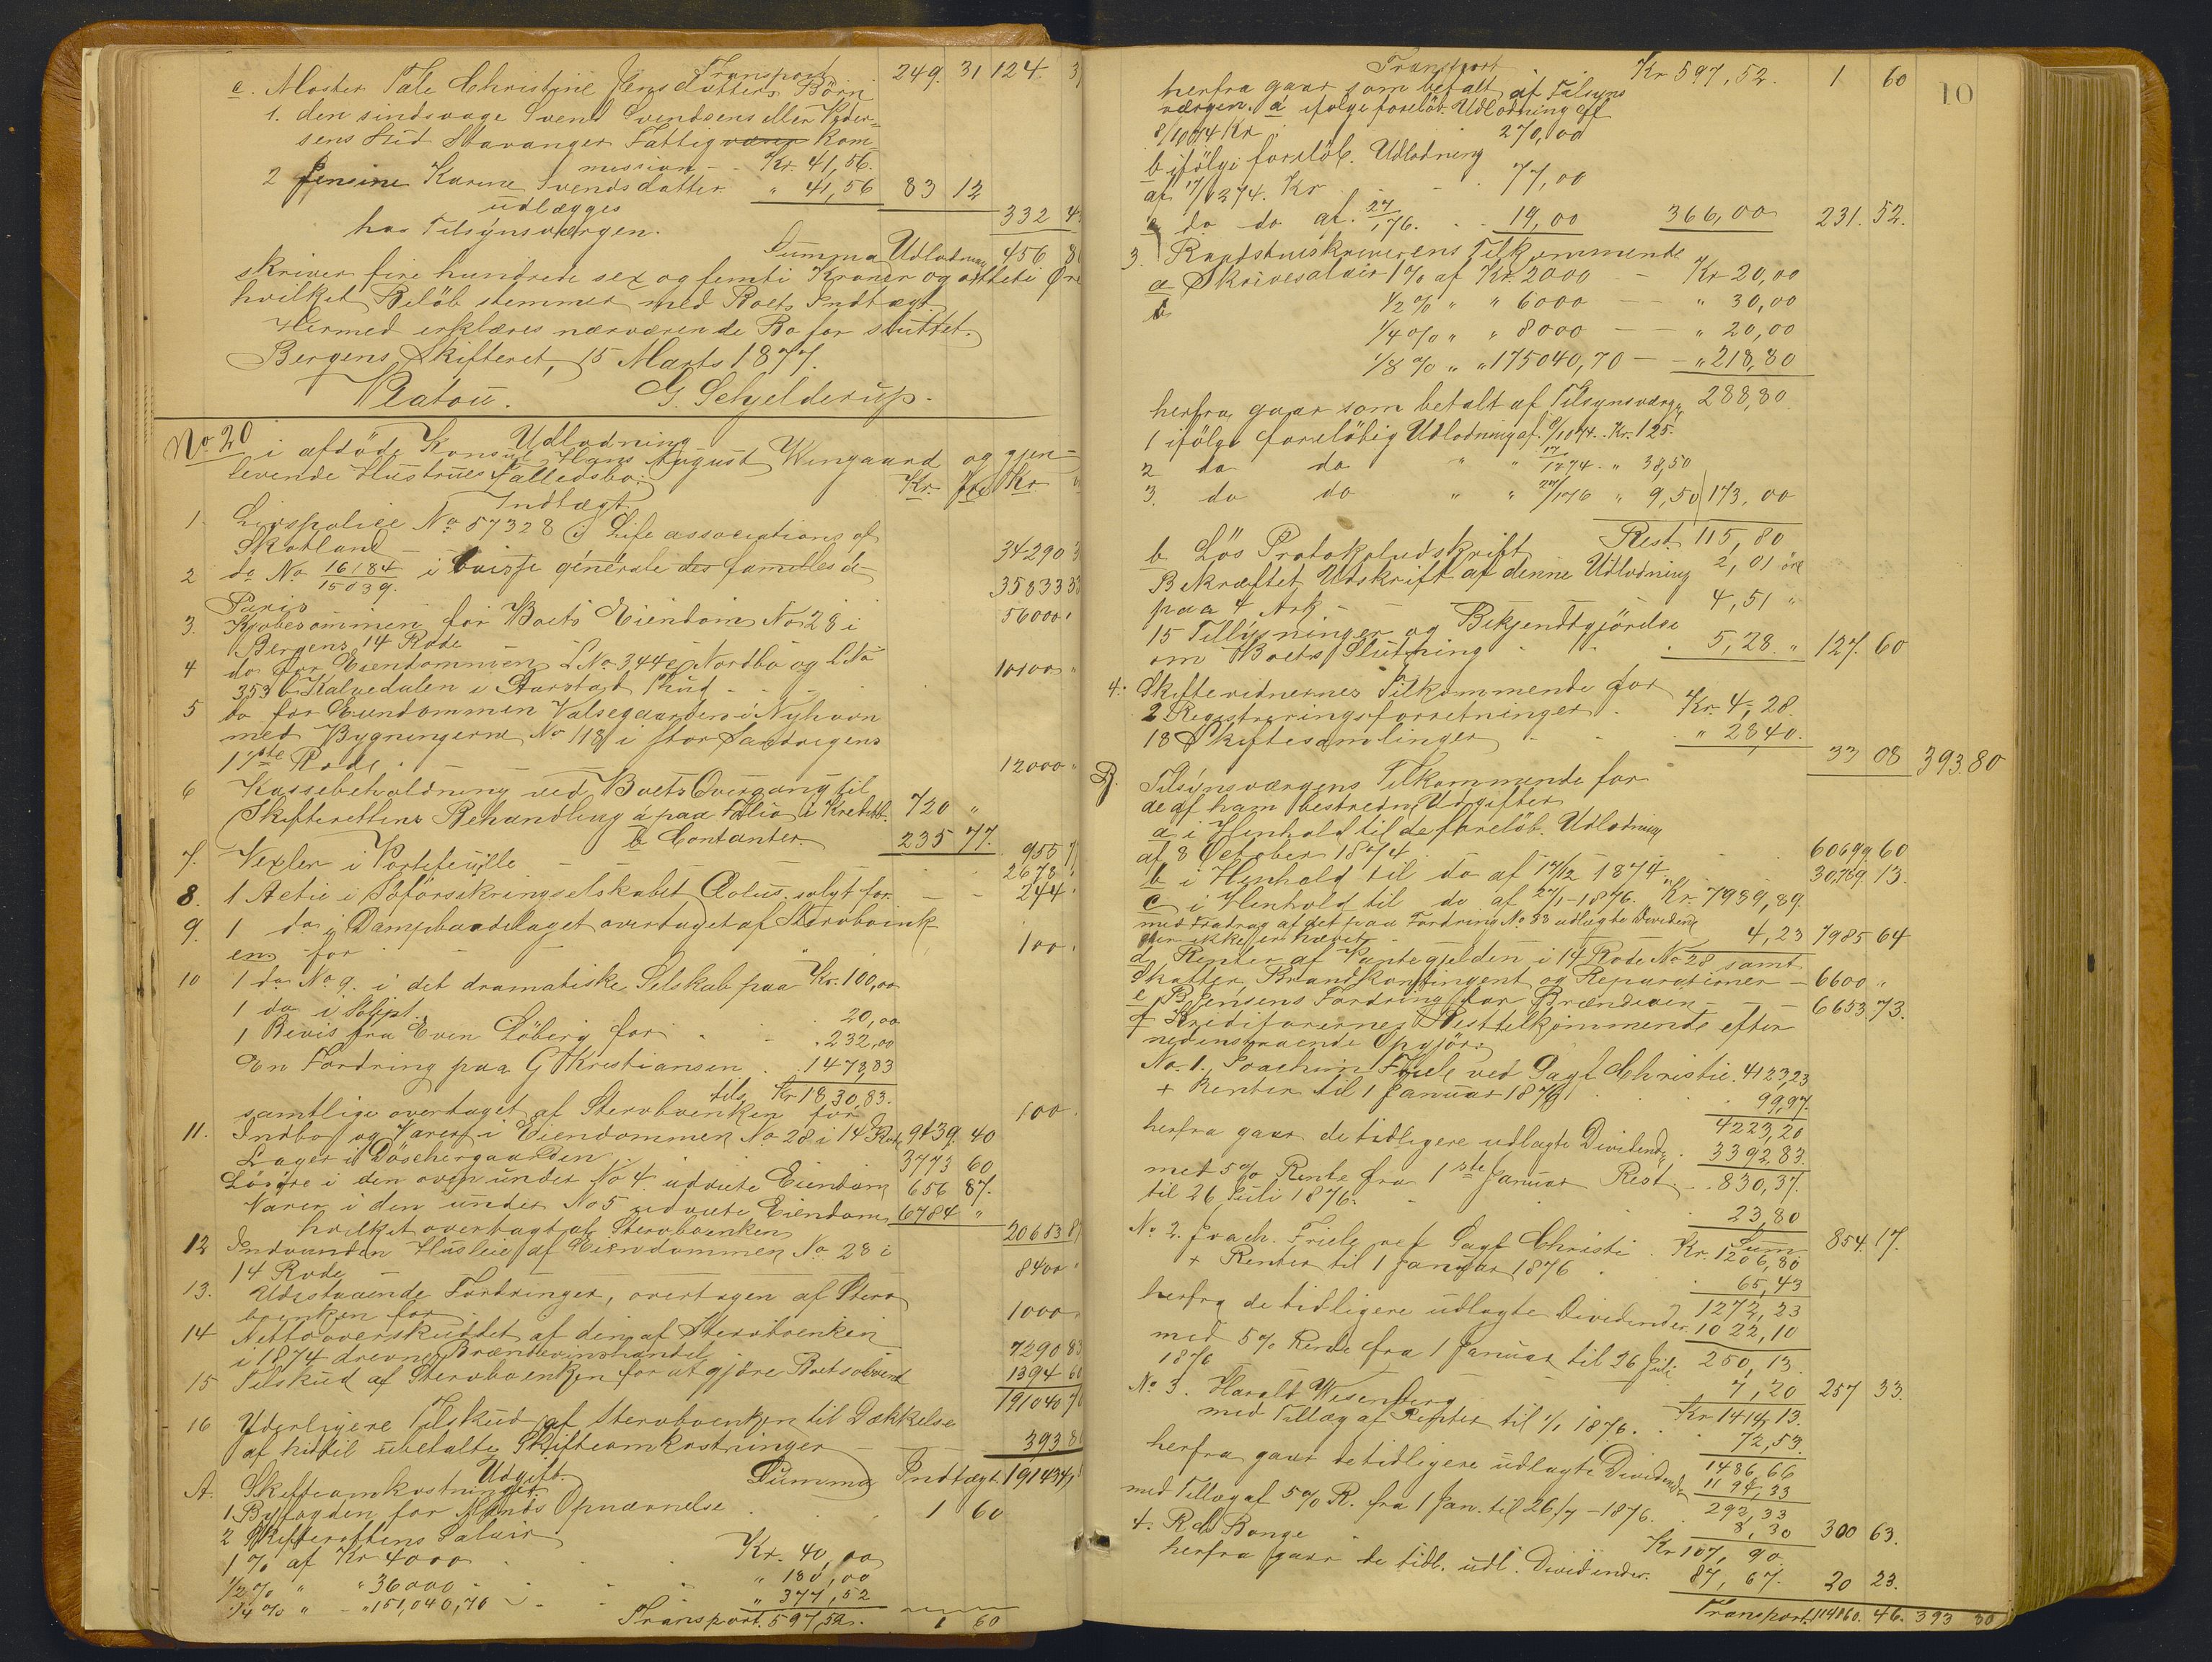 Transport 249. 31 124. 3
c. Moster Tale Christine Jensdatters Börn
1. den sindsvage Svend Svendsens eller Peder-
sens Hud Stavanger Fattigvæsen Kom-
mission - Kr. 41,56.
2 Jensine Karine Svendsdatter " 41,56 83 12
udlægges 332 4
hos Tilsynsværgen.
Summa Udlodning 456 8
skriver fire hundrede sex og femti Kroner og otteti Øre
hvilket Beløb stemmer med Boets Indtægt.
Hermed erklæres nærværende Bo for sluttet.
Bergens Skifteret, 15 Marts 1877.
Platou. G. Schjelderup.
No 20 Udlodning
i afdöde Konsul Hans August Wingaard og gjen-
levende Hustrues Fælledsbo.
Kr. Øre Kr.
Indtægt
1. Livspolice No 57328 i Life associations of
Skotland - - 34290 3
2 do No 16184/15039. i Caisse générale des familles de
Paris 35833 33
3. Kjøbesommen for Boets Eiendom No 28 i 56000 "
Bergens 14 Rode
4 do for Eiendommen L No 344 c Nordbo og L No
353 b Kalvedalen i Aarstad Skud - - - 10100 "
5 do for Eiendommen Valsegaarden i Nyhavn
med Bygningerne No 118 i Stor Sandvigens
17de Rode - - - 12000 "
6 Kassebeholdning ved Boets Overgang til
Skifterettens Behandling a paa Folio i Kreditb. 720 "
b Contanter. 235 77. 955 7
7. Vexler i Portefeuille - - - 2678 "
8. 1 Actie i Söforsikringselskabet Æolus, solgt for - - 244 "
9. 1 do i Dampbaadslaget overtaget af Stervboenk-
en for 100 "
10 1 do No 9. i det dramatiske Selskab paa Kr. 100,00
1 do i 20,00
1 Bevis fra Even Löberg for - . 232,00
En Fordring paa G Kristiansen . 1478,83
tils Kr 1830,83.
samtlige overtaget af Stervboenken for 100 "
11. Indbo og Varer i Eiendommen No 28 i 14 Rode 9439. 40
Lager i Döschergaarden 3773 60
Lösöre i den oven under No 4. udviste Eiendom 656 87.
Varer i den under No 5 udviste Eiendom 6784 "
hvilket overtagt af Stervboenken 20653 87
12 Indvunden Husleie af Eiendommen No 28 i
14 Rode - - - 8400 "
13. Udestaaende Fordringer, overtagen af Sterv-
boenken for 1000 "
14 Nettooverskuddet af den af Stervboenken
i 1874 drevne Brændevinshandel 7290 83
15 Tilskud af Stervboenken for at gjöre Boet solvent 1394 60
191040 70
16 Yderligere Tilskud af Stervboenken til Dækkelse
af hidtil ubetalte Skifteomkostninger - - - 393 80
Summa Indtægt 191434,
Udgift.
A. Skifteomkostninger
1 Byfogden for Mands Opnævnelse . . . 1 60
2 Skifterettens Salair
1 % af Kr 4000 . . . Kr. 40,00
1/2 % " " 36000 - - - " 180,00
1/4 % " - " 151,040,70 - - " 377,52
Transport. 597,52. 1 60
10
Transport Kr 597,52. 1 60
herfra gaar som betalt af Tilsyns
værgen. a ifølge foreløb. Udlodning af
8/10 74 Kr 270,00
b ifölge foreløb. Udlodning
af 17/12 74. Kr - - 77,00
c do do af. 27/1 76. . . 19,00 366,00 231. 52.
3. Raadstueskriverens Tilkommende
a Skriversalair 1 % af Kr. 2000 - Kr 20,00
b 1/2 % " " 6000 - - " 30,00
1/4 % " " 8000 - - " 20,00
1/8 % " " 175040,70 - - " 218,80
288,80
herfra gaar som betalt af Tilsynsværg.
1 ifölge foreløbig Udlodning af. 8/10 74. Kr. 125.
2 do do " " 17/12 74. " 38,50
3. do do " " 27/1 76 " 9,50 173,00
Rest 115,80
b Lös Protokoludskrift 2,01 öre
Bekræftet Udskrift af denne Udlodning
paa 4 Ark - - - 4,51 "
15 Tillysninger og Bekjendtgjörelse
om Boets Slutning . . . 5,28. " 127. 60
4. Skiftevidnernes Tilkommende for
2 Registreringsforretninger . Kr. 4,28.
18 Skiftesamlinger . . . " 28,40.
33 08 393.80
B. Tilsynsværgens Tilkommende for
de af ham bestredne Udgifter
a i Henhold til de foreløb. Udlodning
af 8 October 1874 . . . 60699 60
b i Henhold til do af 17/12 1874 . . 30789. 13.
c i Henhold til do af 27/1 - 1876. Kr. 7989,89.
med Fradrag af det paa Fordring No 33 udlagte Dividend
der ikke er hævet - - - 4,23 7985 64
d Renter af Pantegjelden i 14 Rode No 28 samt
Skatter, Brandkontingent og Reparationer - 6600 "
e B. Jensens Fordring for Brændeven - - - 6653 73.
f Kreditorernes Resttilkommende efter
nedenstaaende Opgjör.
No. 1. Joachim Friele ved Sagf. Christie. 4123,23
+ Renter til 1 Januar 1876 . . . 99,97.
4223,20
herfra gaar de tidligere udlagte Dividender . 3392,83.
Rest. . . 830,37.
med 5 % Rente fra 1ste Januar
til 26 Juli 1876. 23,80
Sum 854. 17.
No 2. Joach. Friele ved Sagf Christi . Kr. 1206,80
+ Renter til 1 Januar 1876 . . 65,43
1272,23
herfra de tidligere udlagte Dividender. 1022,10
250,13.
med 5 % Rente fra 1 Januar til 26 Juli
1876 7,20 257 33.
No 3. Harald Wesenberg Kr 1414,13.
med Tillæg af Renter til 1/1 1876. . . 72,53.
1486,66
herfra gaar de tidligere udlagte Dividender 1194,33
292,33
med Tillæg af 5 % R. fra 1 Jan. til 26/7 - 1876. . 8,30 300 63.
4. R d Bange Kr 107,90.
herfra gaar de tidl. udl. Dividender. 87,67. 20 23.
Transport. 114860. 46. 393 80